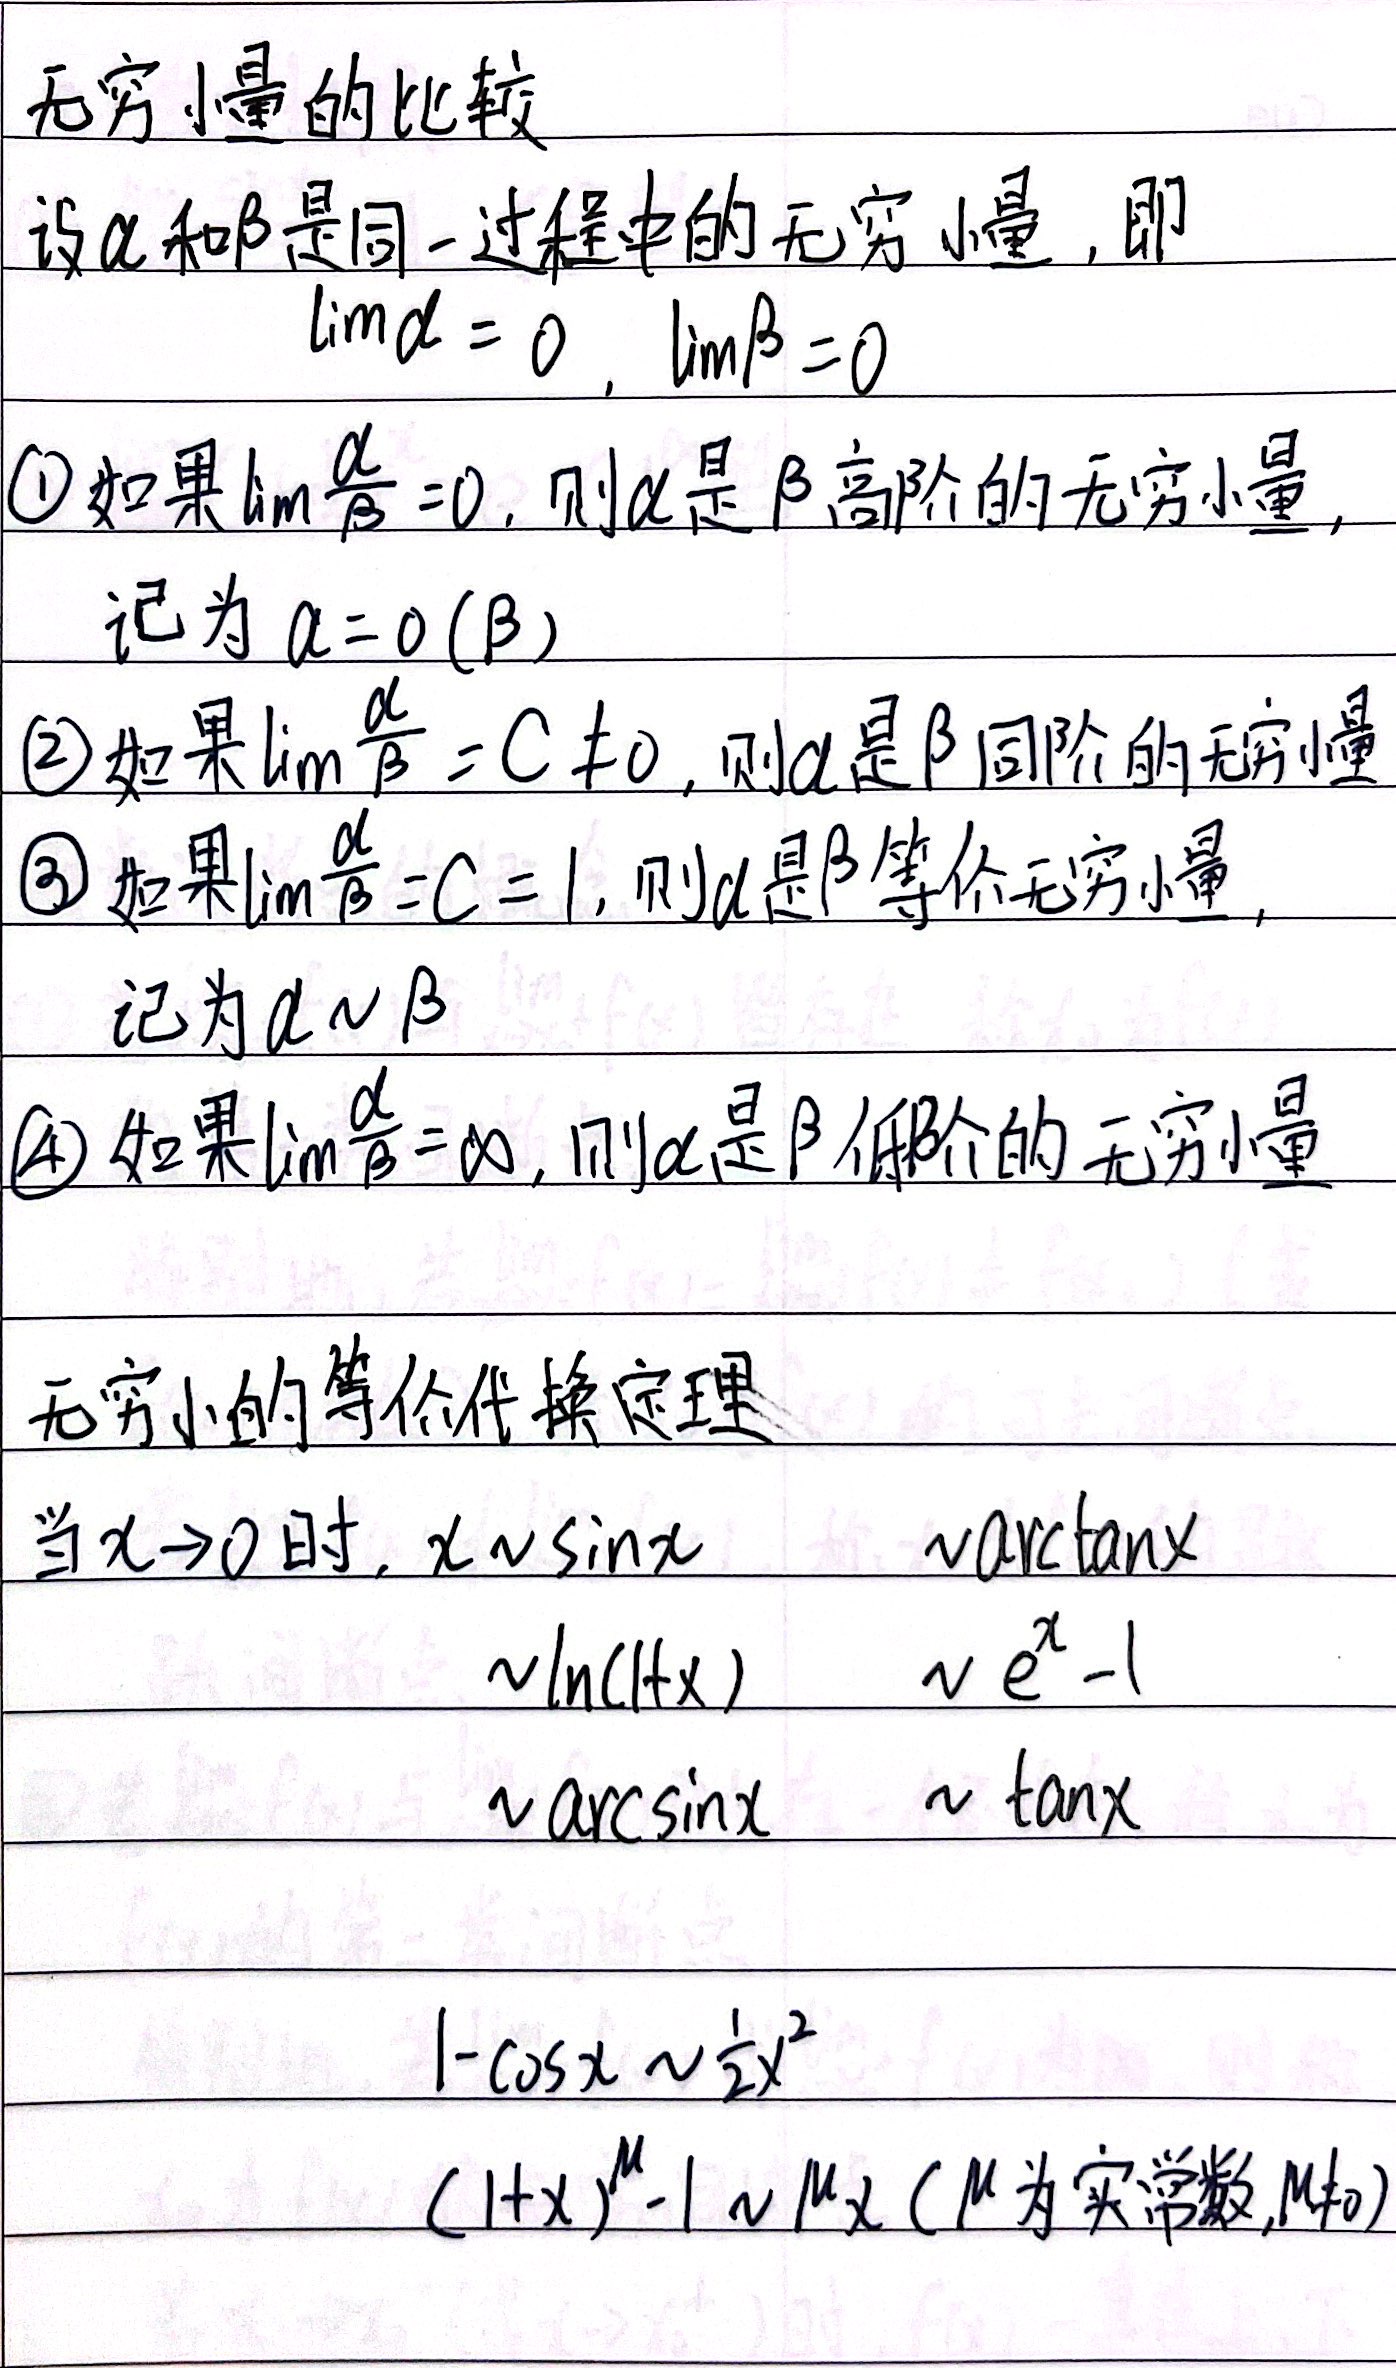 无穷小量的比较
设α和β是同一过程中的无穷小量，即
limα = 0，limβ = 0
① 如果lim α/β = 0，则α是β高阶的无穷小量，
记为 α = o(β)
② 如果lim α/β = C ≠ 0，则α是β同阶的无穷小量
③ 如果lim α/β = C = 1，则α是β等价无穷小量，
记为α ~ β
④ 如果lim α/β = ∞，则α是β低阶的无穷小量
无穷小的等价代换定理
当x→0时，x ~ sinx ~ arctanx
~ ln(1+x) ~ eˣ - 1
~ arcsinx ~ tanx
1 - cosx ~ ½x²
(1+x)^μ - 1 ~ μx (μ为实常数,μ≠0)